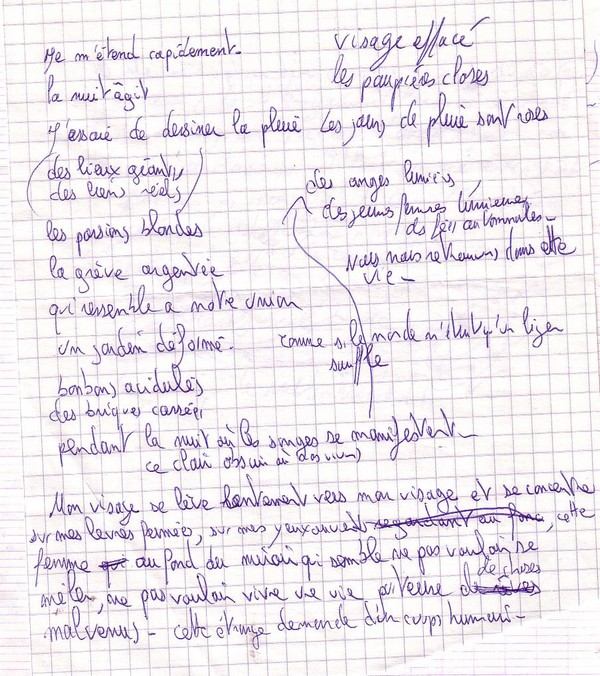 Je m'étend rapidement
la nuit âgit
J'essaie de dessiner la pluie
(des lieux géants,
des liens réels)
les poisons blondes
la grève argentée
qui ressemble a notre union
un jardin déformé.
bonbons acidulés
des briques cassées
pendant la nuit où les songes se manifestent
ce clair obscur où
visage effacé
les paupières closes
Les jours de pluie sont roses
des anges lumière,
des jeunes femmes lumineuses
des automnales -
Nous nous retrouvons dans cette
vie -
comme si le monde n'était qu'un léger
souffle
Mon visage se lève lentement vers mon visage et se concentre
sur mes lèvres fermées, sur mes yeux ouverts regardant au fond, cette
femme qui au fond du miroir qui semble ne pas vouloir se
mêler, ne pas vouloir vivre une vie de rêves
de choses
malvenues - cette étrange demande d'un corps humain -